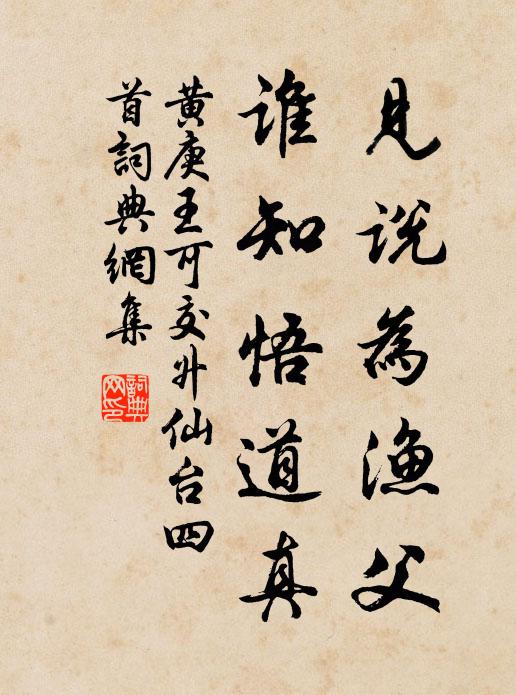 見說為漁父
谁知悟道真
黄庚王可交升仙台四
首詞典網集
詞典
网印